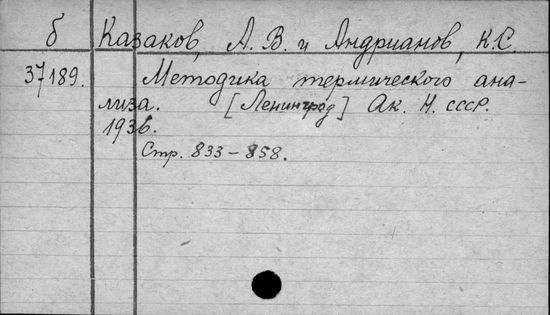 б Казаков, А. В. и Андрианов, К.С.
37189. Методика термического ана-
лиза. [Ленинград] Ак. Н. СССР.
1936.
Стр. 833-858.